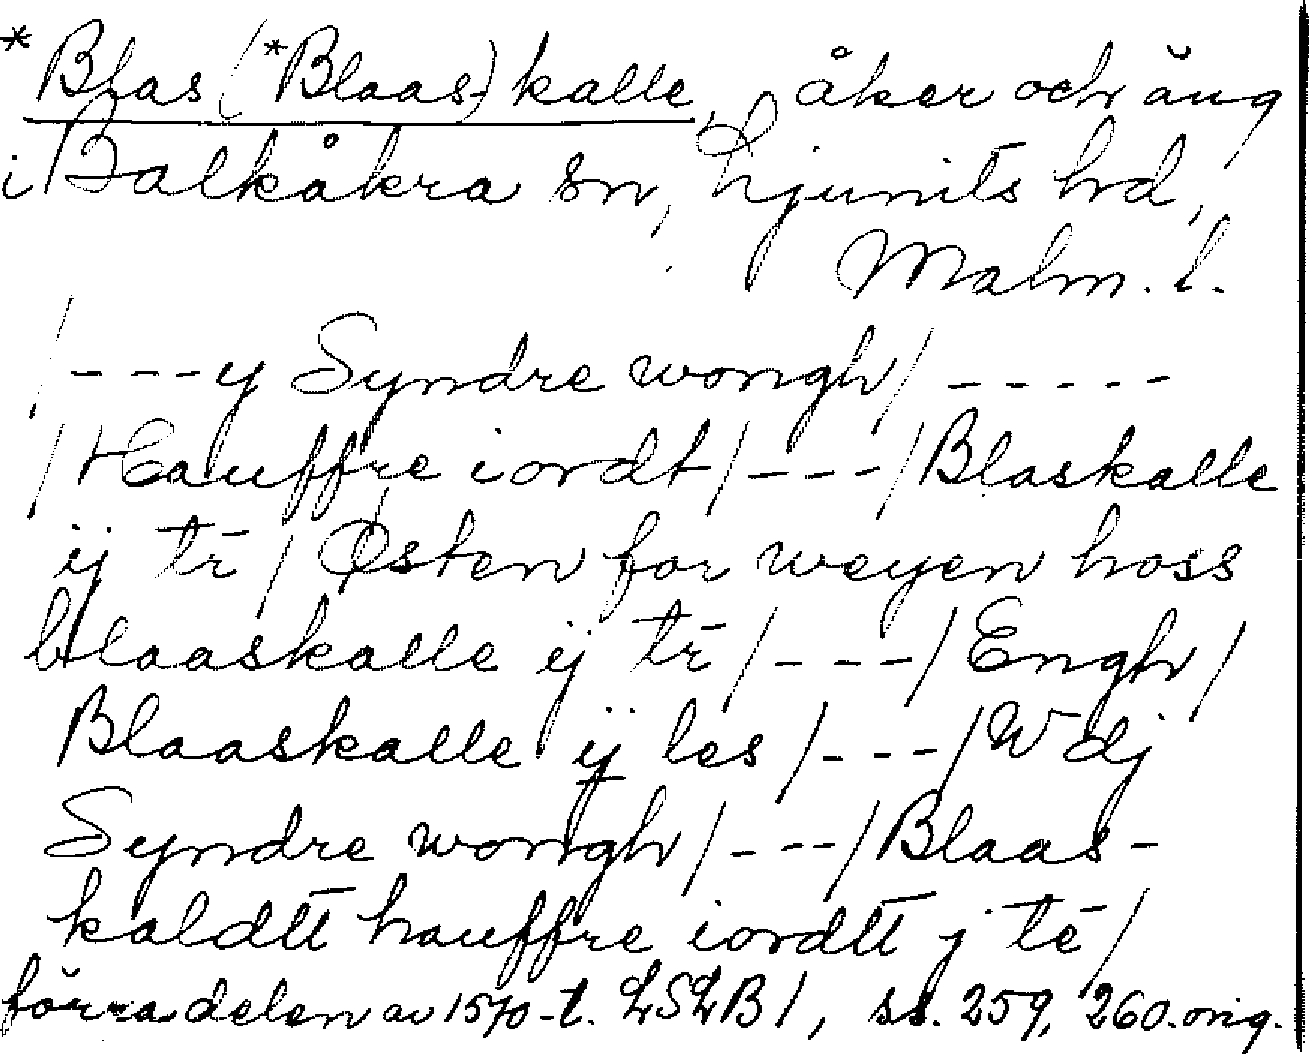 *Blas (*Blaas-) kalle, åker och äng
i Balkåkra sn, Ljunits hd,
Malm. l.
/---y Syndre wongh/-----
/Hauffre iordt/---/Blaskalle
ij tr̄ / Østen for weyen hoss
blaaskalle ij tr̄ /---/ Engh /
Blaaskalle ij les /---/ W dj
Syndre wongh /---/ Blaas-
kaldtt hauffre iordtt j tē /
förra delen av 1570-t. LSLB 1, ss. 259, 260. orig.